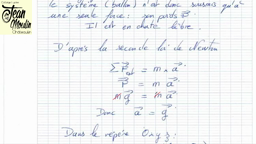 Jean
Moulin
le système (ballon) n'est donc soumis qu'à
une seule force : son poids P⃗
Il est en chute libre.
D'après la seconde loi de Newton
∑F⃗ext = m × a⃗
P⃗ = m a⃗
m g⃗ = m a⃗
Donc a⃗ = g⃗
Dans le repère Oxyz :